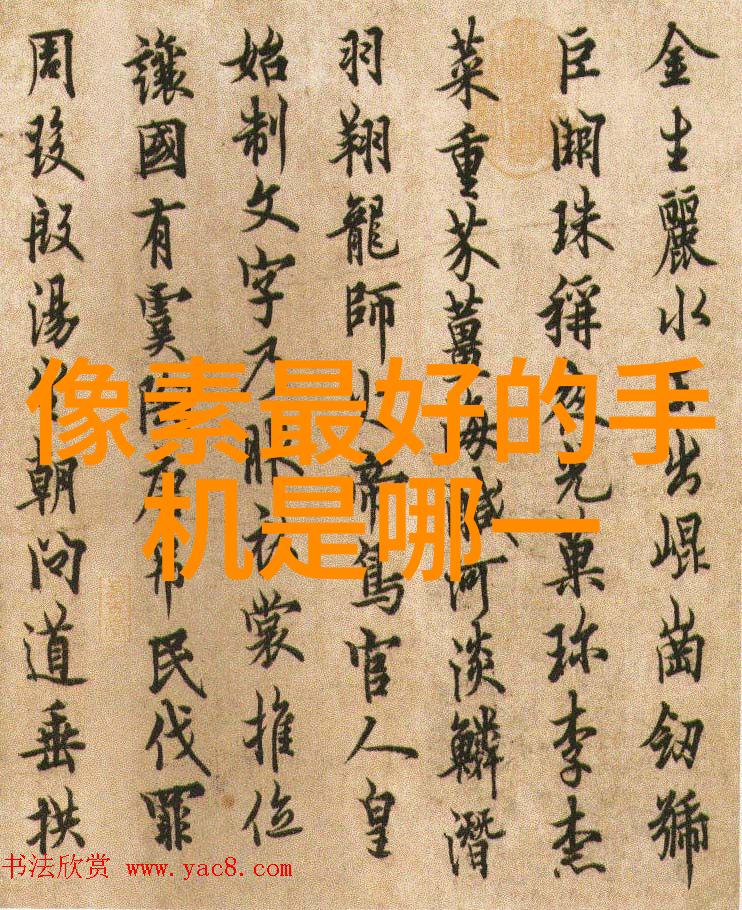 金生麗水玉出崐崗釼號
巨闕珠稱夜光菓珎李柰
菜重芥薑海鹹河淡鱗潛
羽翔龍師火帝鳥官人皇
始制文字乃服衣裳推位
讓國有虞陶唐弔民伐罪
周發殷湯坐朝問道垂拱
像素最好的手
机是哪一
书法欣赏 www.yac8.com